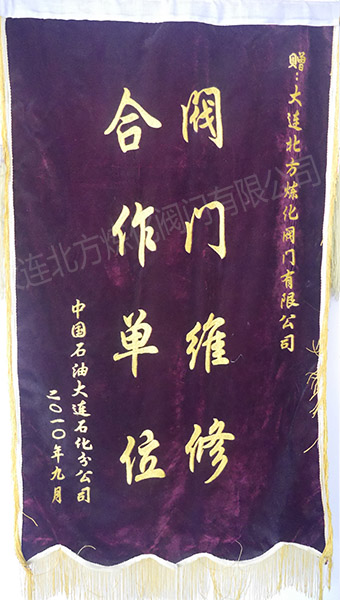 赠：大连北方炼化阀门有限公司
阀门维修
合作单位
中国石油大连石化分公司
二〇一〇年九月
连北方炼化阀门有限公司